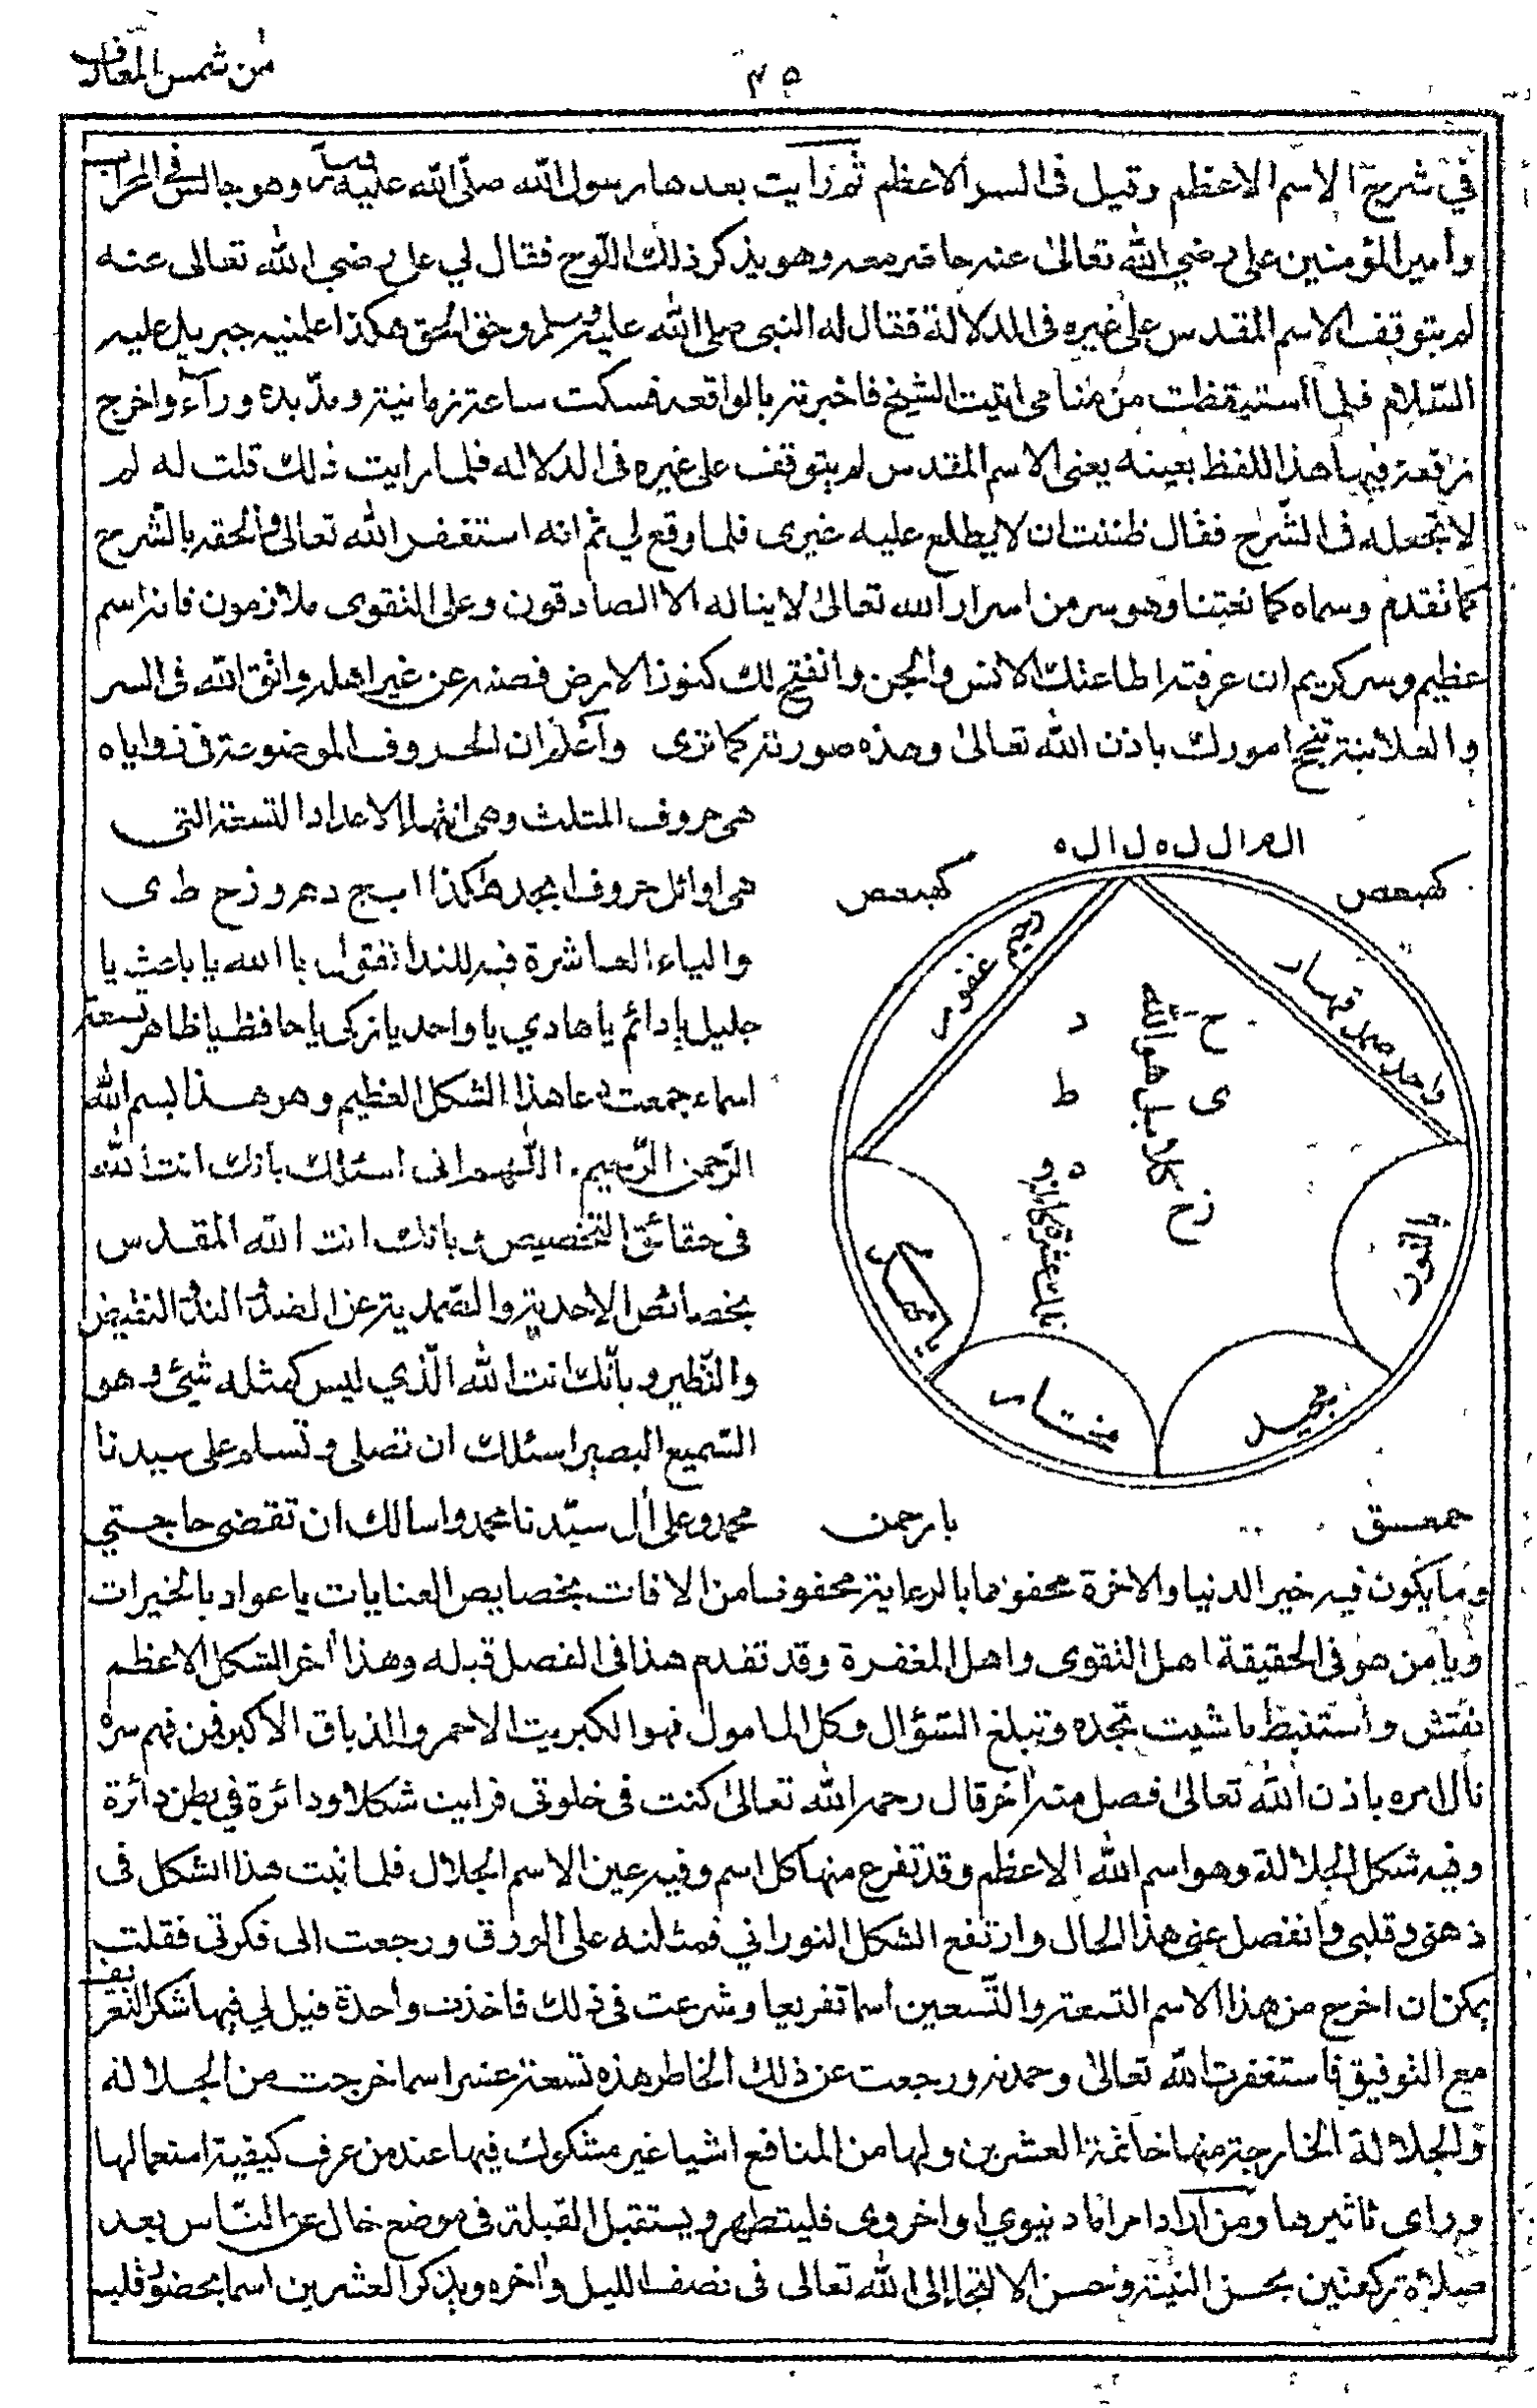 من شمس المعارف
٣٥
في شرح الاسم الاعظم وقيل فى السر الاعظم ثم رايت بعدها رسول الله صلّى الله عليه وسلم وهو جالس فى المحراب
وأمير المؤمنين على رضي الله تعالىٰ عنه حاضر معه وهو يذكر ذلك اللّوح فقال لي على رضي الله تعالى عنه
لم يتوقف الاسم المقدس على غيره فى الدلالة فقال له النبى صلى الله عليه وسلم وحق الحق هكذا علمنيه جبريل عليه
السّلام فلما استيقظت من منامى اتيت الشيخ فاخبرته بالواقعه فسكت ساعة زمانية ومدّ يده وراءه واخرج
رقعة فيها هذا اللفظ بعينه يعنى الاسم المقدس لم يتوقف على غيره فى الدلاله فلما رايت ذلك قلت له لم
لا تجعله فى الشّرح فقال ظننت ان لا يطلع عليه غيرى فلما وقع لي ثم انه استغفر الله تعالى وألحقه بالشّرح
كما تقدم وسماه كما نعتنا وهو سر من اسرار الله تعالىٰ لا يناله الا الصادقون وعلى التقوى ملازمون فانه اسم
عظيم وسر كريم ان عرفته اطاعتك الانس والجن وانفتح لك كنوز الارض فصنه عن غير اهله واتق الله فى السر
والعلانية تنجح امورك باذن الله تعالىٰ وهذه صورته كما ترى واعلم ان الحروف الموضوعة فى زواياه
هى حروف المثلث وهى انتهاء الاعداد التسعة التى
هى اوائل حروف ابجد هكذا ا ب ج د ه و ز ح ط ى
والياء العاشرة فيه للندا تقول يا الله يا باعث يا
جليل يا دائم يا هادي يا واحد يا زكى يا حافظ يا ظاهر تسعة
اسماء جمعت دعا هذا الشكل العظيم وهو هذا بسم الله
الرّحمن الرّحيم اللّهم انى اسئلك بانك انت الله
فى حقائق التخصيص وبانك انت الله المقدس
بخصائص الاحدية والصّمدية عن الضدّ والندّ والنقيض
والنّظير وبانّك انت الله الّذي ليس كمثله شئ وهو
السّميع البصير اسئلك ان تصلى وتسلم على سيدنا
محمد وعلى آل سيّدنا محمد واسالك ان تقضى حاجتي
الم ا ل ل ه ل ا ل ه
كهيعص
كهيعص
واحد صمد قهار
غفور
ح
د
ى
ط
ز ح
ه و
كلا بل هو الله
مختار
مجيد
حمعسق
يا رحمن
وما يكون فيه خير الدنيا والاخرة محفوفا بالرعاية محفوظا من الافات بخصايص العنايات يا عواد بالخيرات
ويا من هو فى الحقيقة اهل التقوى واهل المغفرة وقد تقدم هذا فى الفصل قبله وهذا اخر الشكل الاعظم
نفتش وأستنبط ما شيت تجده وتبلغ السّؤال وكل المامول فهو الكبريت الاحمر والدرياق الاكبر فمن فهم سره
نال امره باذن الله تعالىٰ فصل منه اخر قال رحمه الله تعالىٰ كنت فى خلوتى فرايت شكلا ودائرة في بطن دائرة
وفيه شكل الجلالة وهو اسم الله الاعظم وقد تفرع منها كل اسم وفيه عين الاسم الجلال فلما ثبت هذا الشكل فى
ذهنى وقلبى وانفصل عنى هذا الحال وارتفع الشكل النوراني فمثلته على الورق ورجعت الى فكرتى فقلت
يمكن ان اخرج من هذا الاسم التسعة والتّسعين اسما تفريعا وشرعت فى ذلك فاخذت واحدة فقيل لي فيها شكر النعم
مع التوفيق فاستغفرت الله تعالىٰ وحمدته ورجعت عن ذلك الخاطر هذه تسعة عشر اسما خرجت من الجلالة
والجلالة الخارجة منها خاتمة العشرين ولها من المنافع اشيا غير مشكوك فيها عند من عرف كيفية استعمالها
وراى تاثيرها ومن اراد امرا ما دنيوي او اخروى فليتطهر ويستقبل القبلة فى موضع خال عن النّاس بعد
صلاة ركعتين بحسن النية وحسن الالتجا إلى الله تعالى فى نصف الليل واخره ويذكر العشرين اسما بحضور قلبه